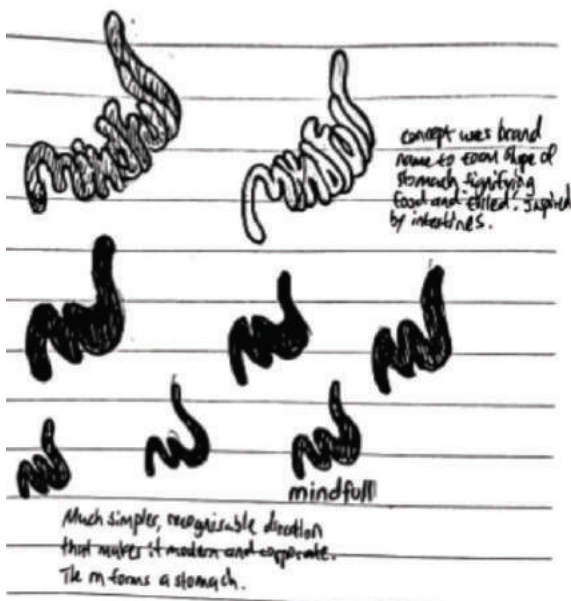 concept was brand
name to form shape of
stomach signifying
food and filled. Inspired
by intestines.
mindfull
Much simpler, recognisable direction
that makes it modern and corporate.
The m forms a stomach.